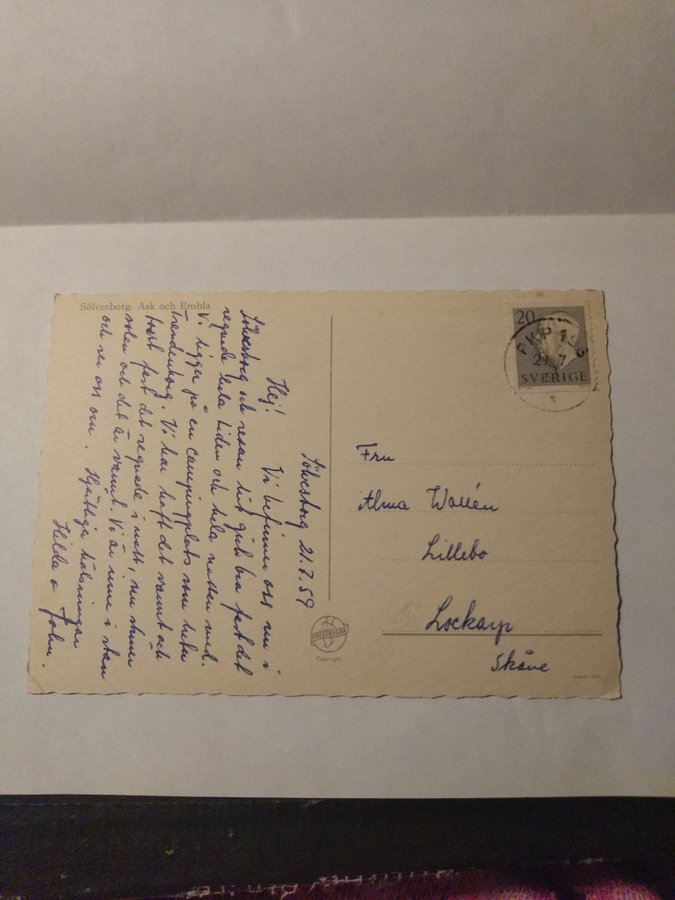 Sölvesborg. Ask och Embla
Sölvesborg 21.7.59
Hej! Vi befinner oss nu i
Sölvesborg och resan hit gick bra fast det
regnade hela tiden och hela natten med.
Vi ligger på en campingplats som heter
Tredenborg. Vi har haft det varmt och
skönt fast det regnade i natt, nu skiner
solen och det är varmt. Vi är inne i stan
och ser oss om. Hjärtliga hälsningar
Hilda o John.
20
21.7
SVERIGE
Fru
Alma Wallén
Lillebo
Lockarp
Skåne
Copyright